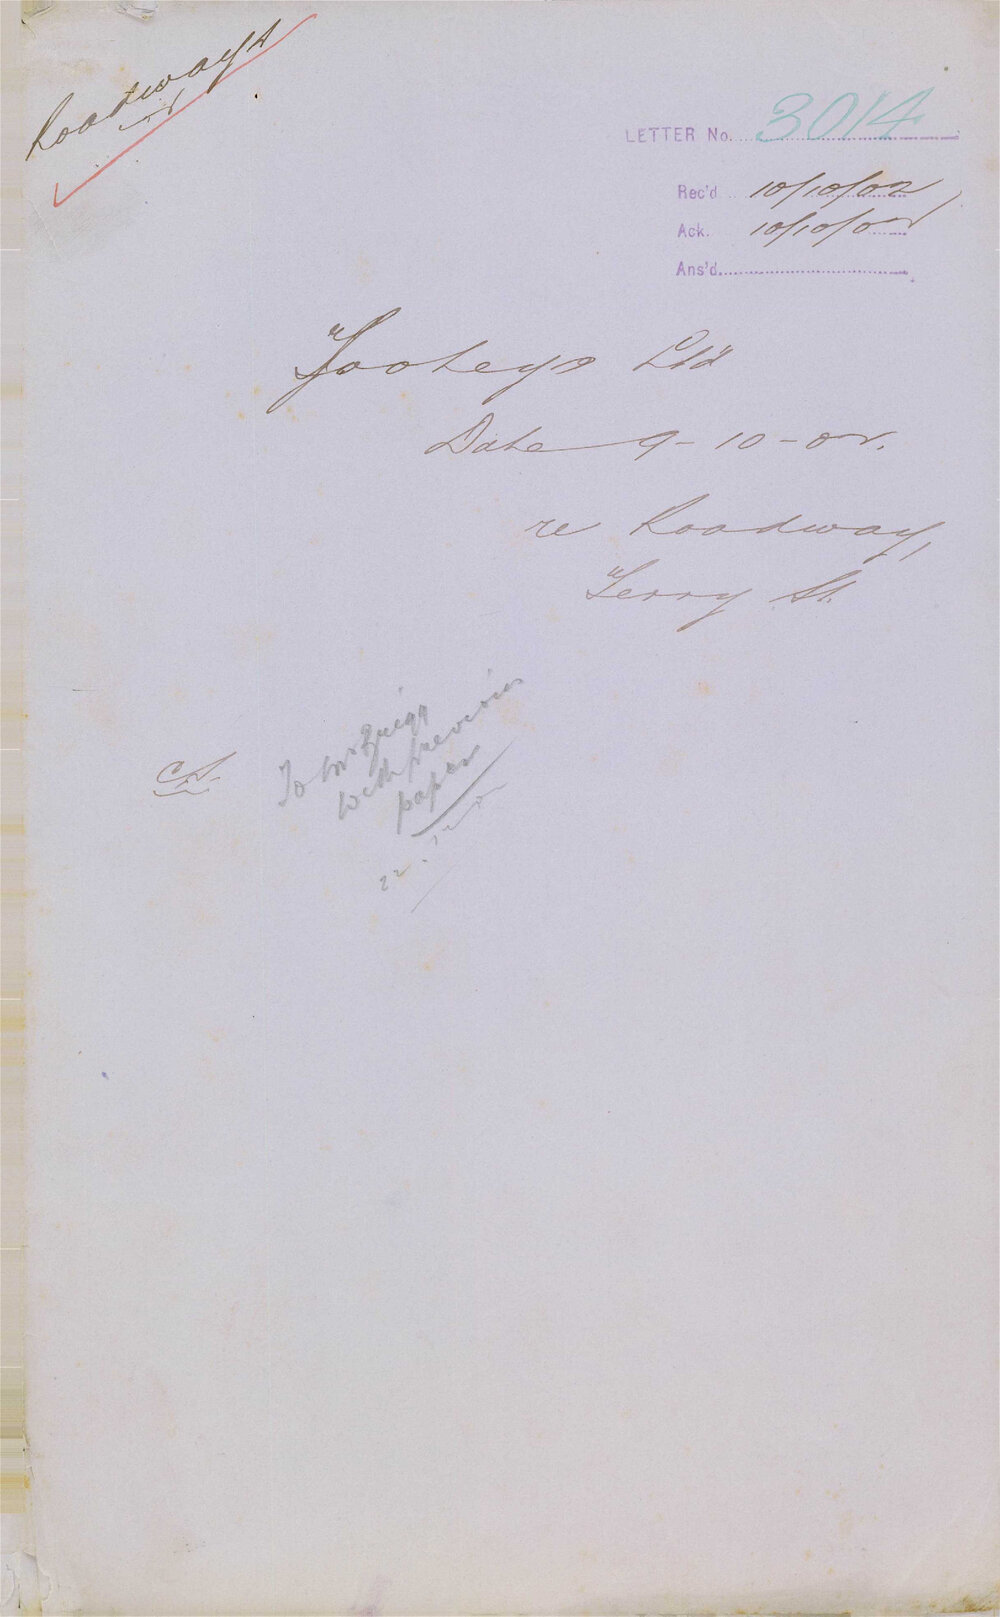 Roadways
LETTER No. 3014
Rec'd 10/10/02
Ack. 10/10/02
Ans'd.
Tooheys Ltd
Date 9-10-02.
re Roadway,
Terry St.
To Mr Grigg
with previous
papers